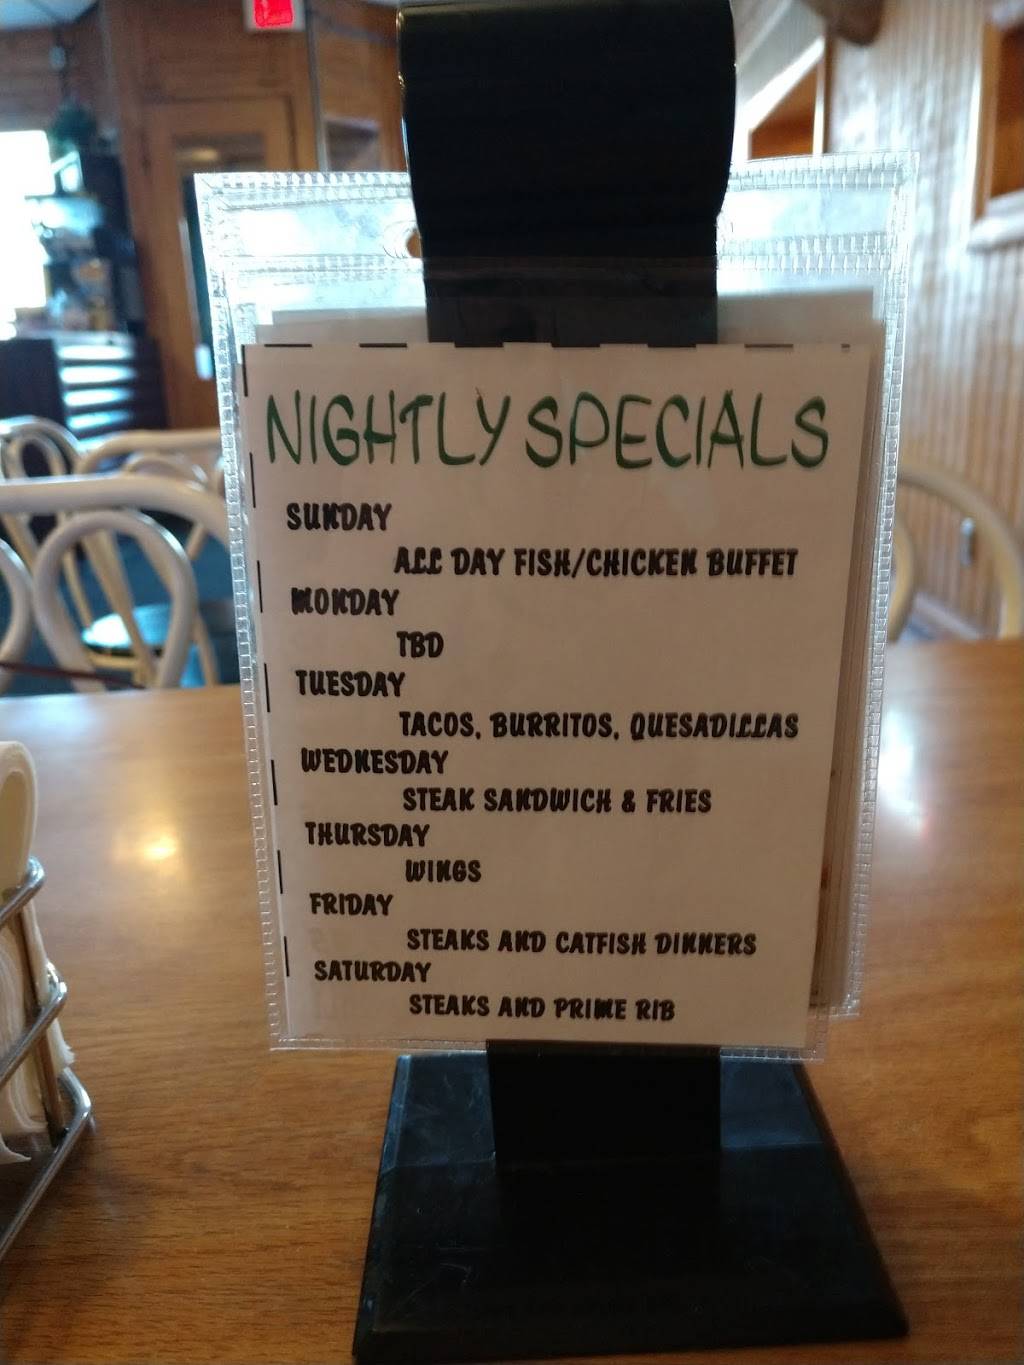 NIGHTLY SPECIALS
SUNDAY
ALL DAY FISH/CHICKEN BUFFET
MONDAY
TBD
TUESDAY
TACOS, BURRITOS, QUESADILLAS
WEDNESDAY
STEAK SANDWICH & FRIES
THURSDAY
WINGS
FRIDAY
STEAKS AND CATFISH DINNERS
SATURDAY
STEAKS AND PRIME RIB